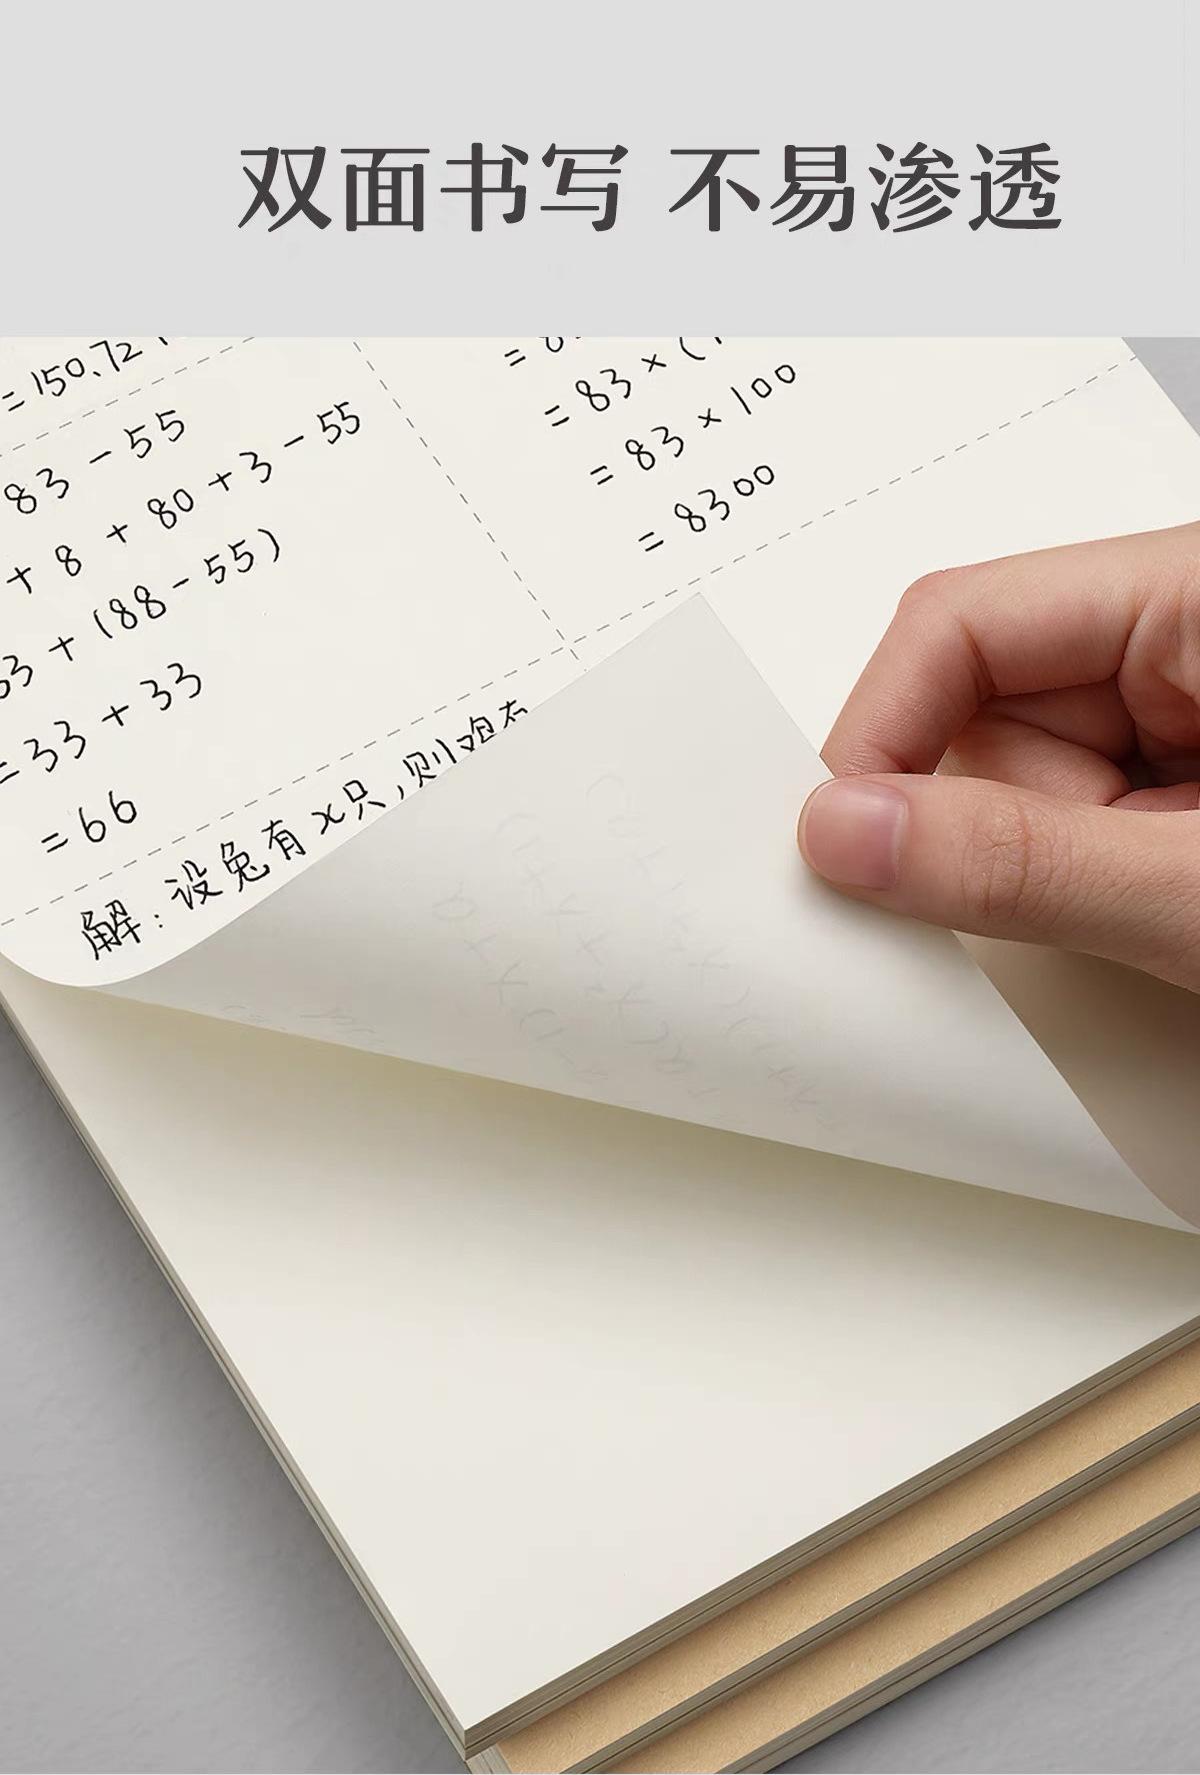 双面书写 不易渗透
=150.72
83-55
+8+80+3-55
3+(88-55)
=33+33
=66
=83×(
=83×100
=8300
解:设兔有x只,则鸡有